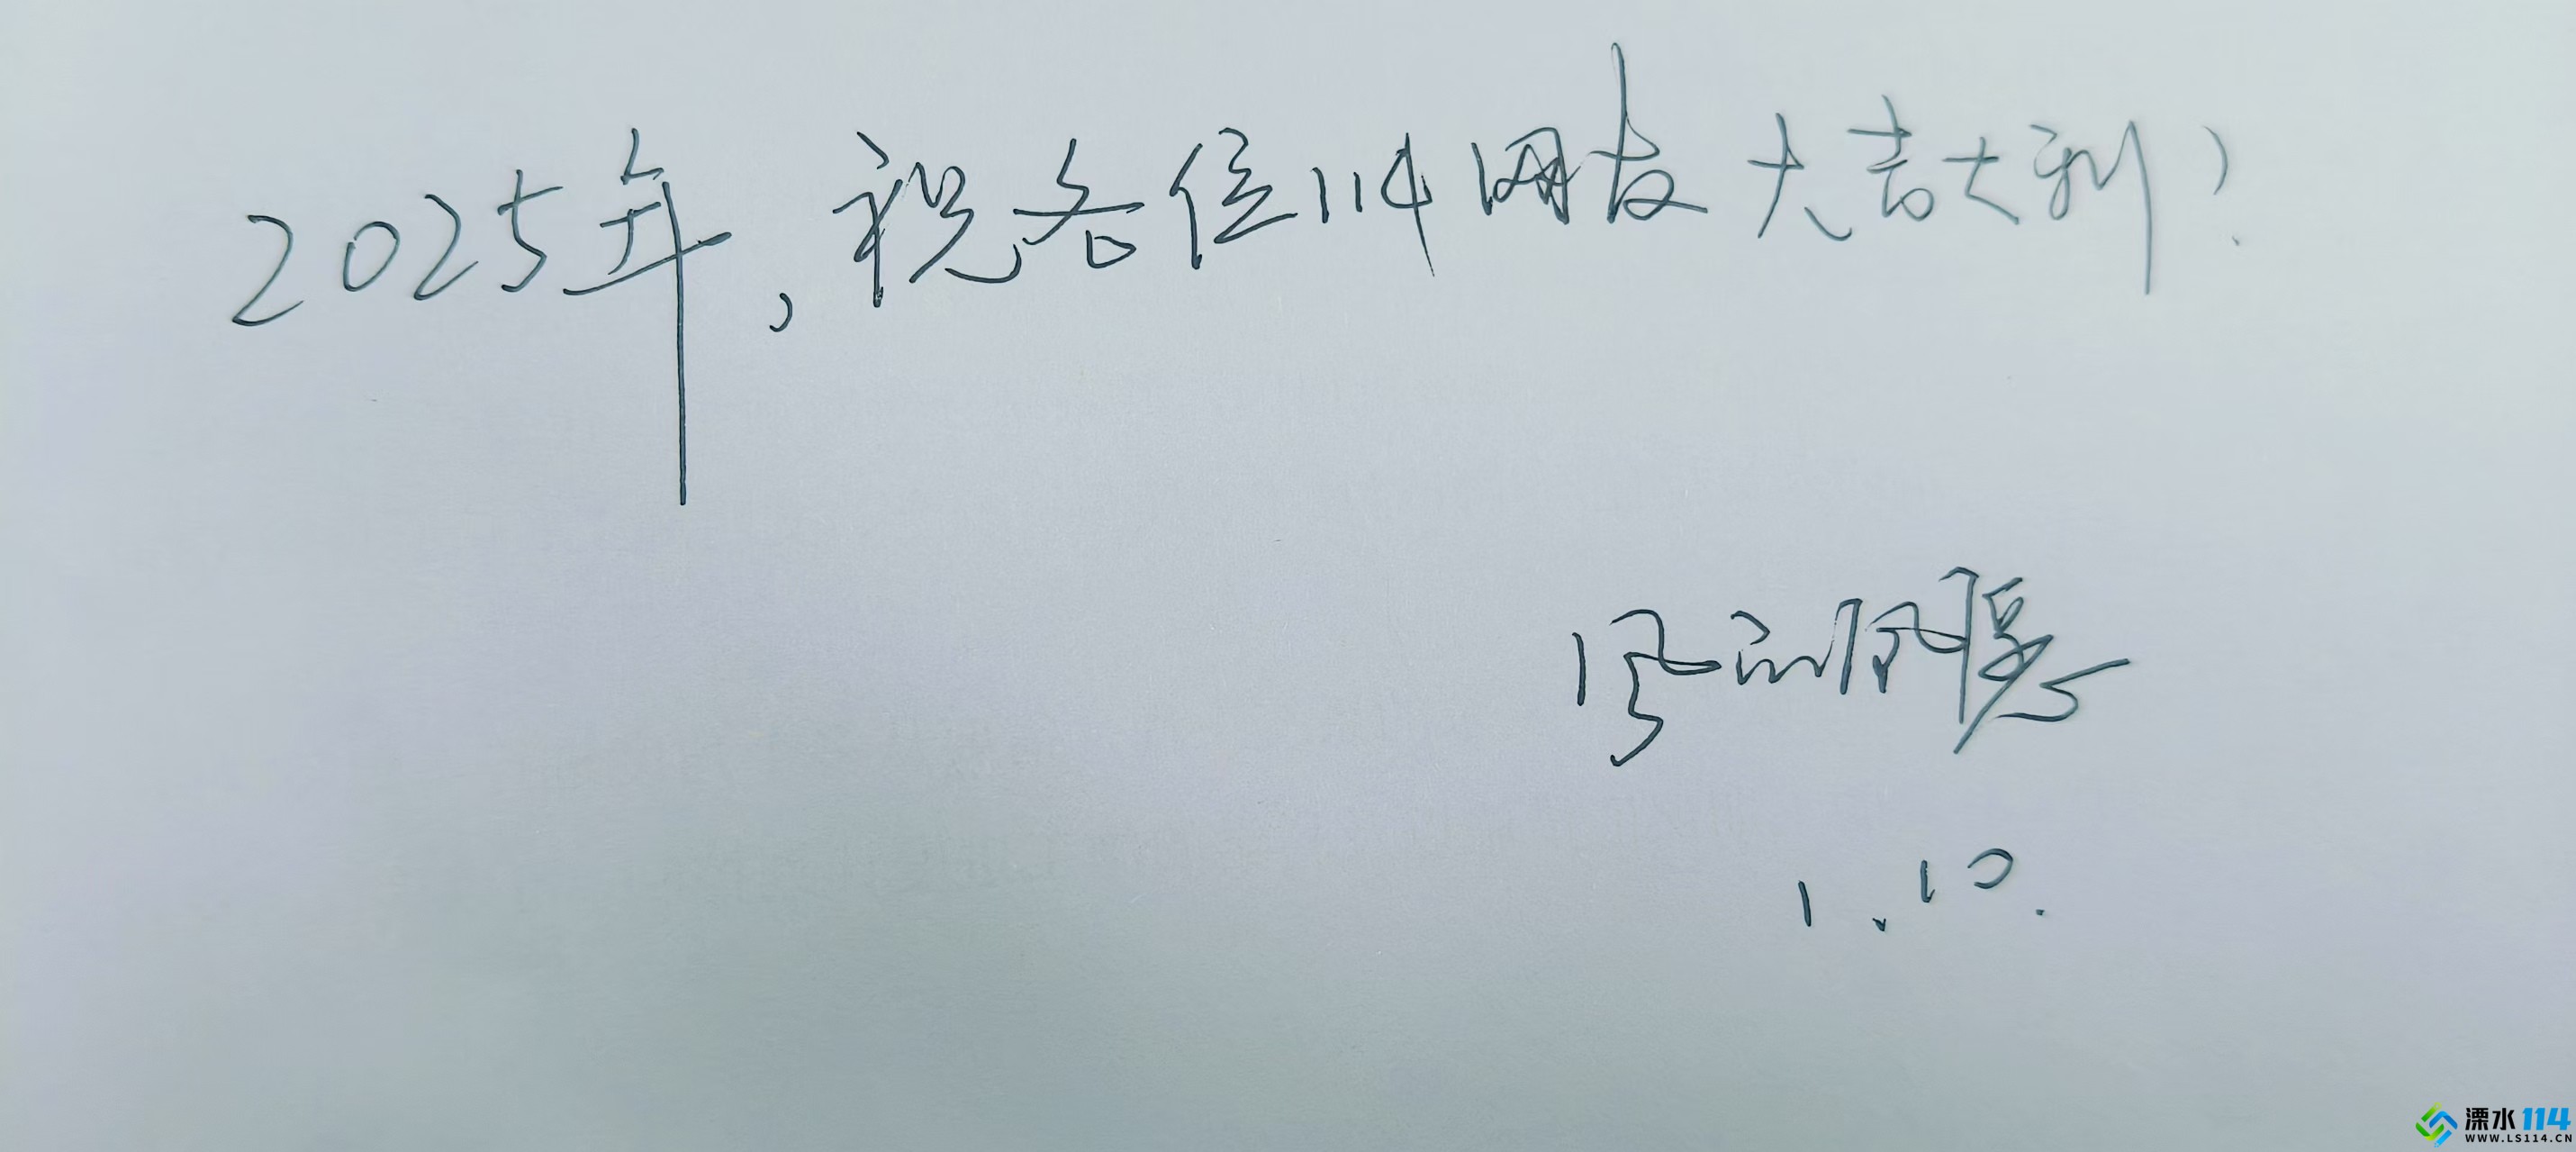 2025年，祝各位114网友大吉大利！
1.10.
溧水114
WWW.LS114.CN